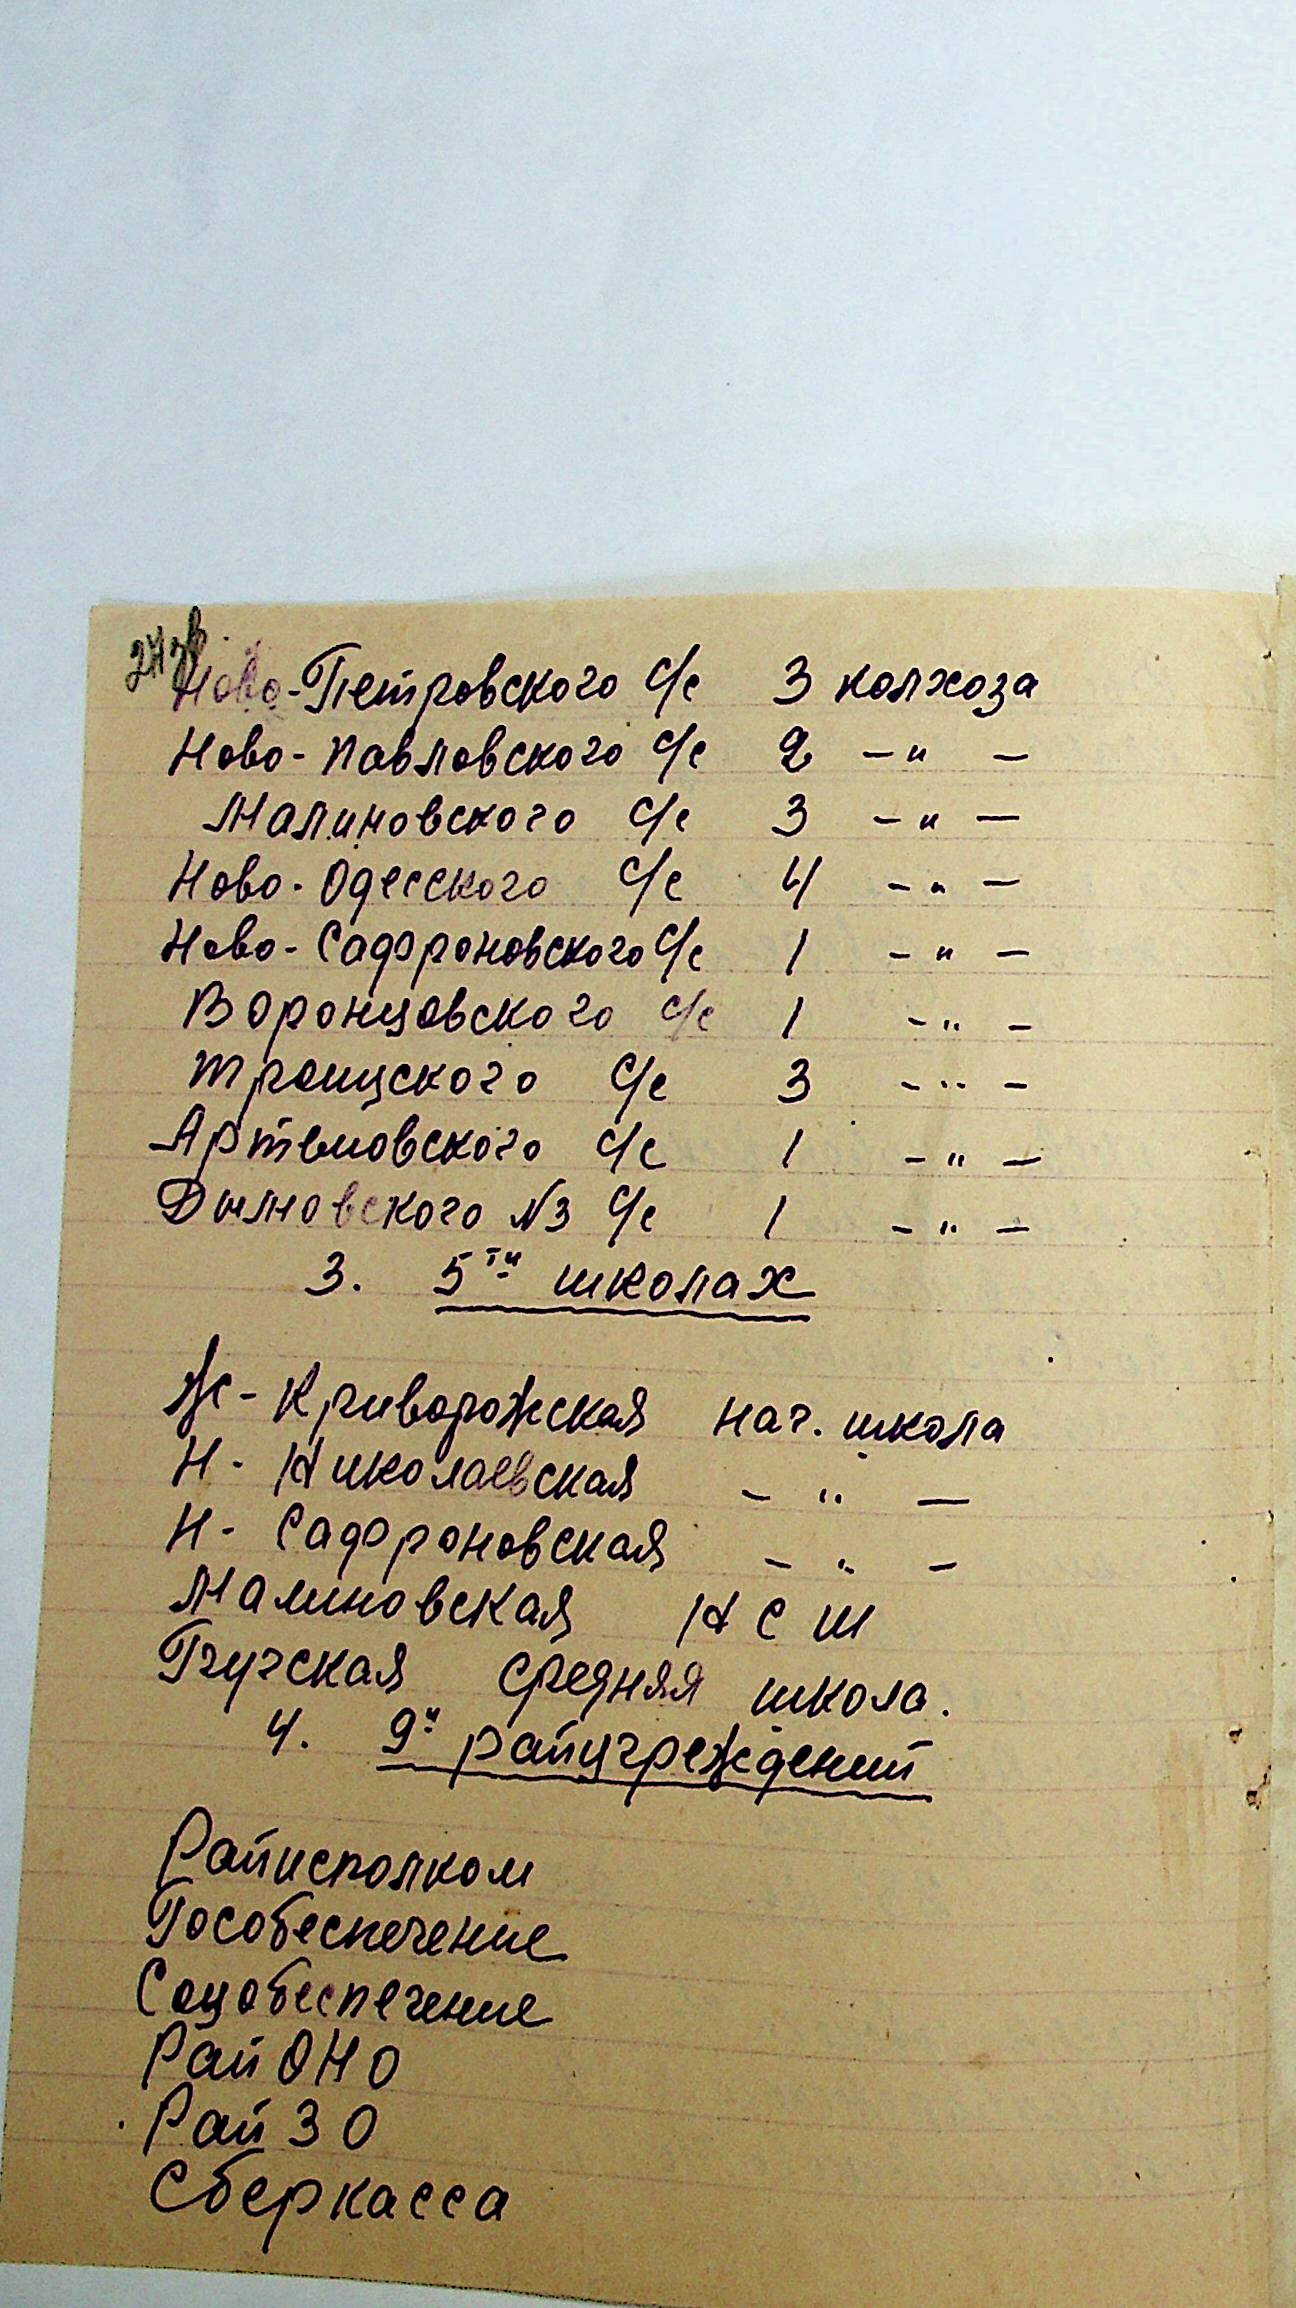 27 зв.
Ново-Петровского с/с 3 колхоза
Ново-Павловского с/с 2 -"-
Малиновского с/с 3 -"-
Ново-Одесского с/с 4 -"-
Ново-Сафроновского с/с 1 -"-
Воронцовского с/с 1 -"-
Троицского с/с 3 -"-
Артемовского с/с 1 -"-
Дымовского №3 с/с 1 -"-
3. 5ти школах
Ж-Криворожская нач. школа
Н-Николаевская -"-
Н-Сафроновская -"-
Малиновская НСШ
средняя школа.
4. 9и райучреждений
Райисполком
Гособеспечение
Соцобеспечение
РайОНО
РайЗО
Сберкасса